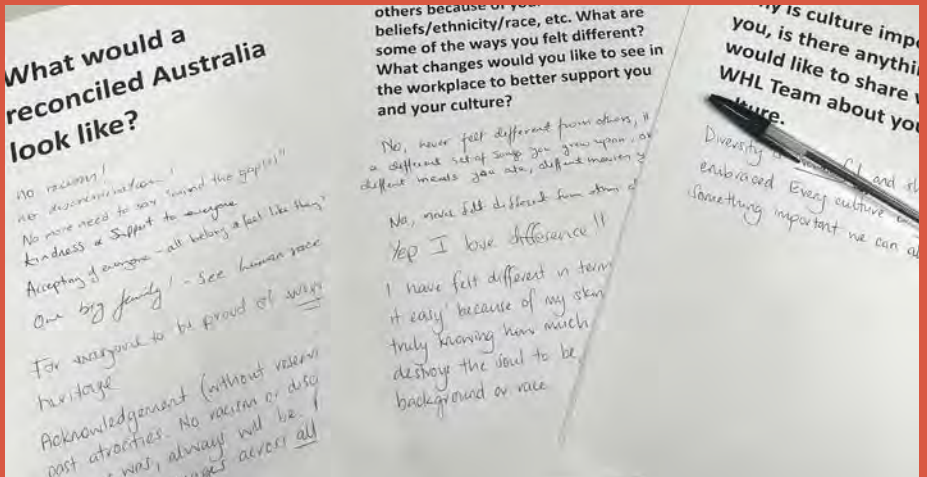 What would a
reconciled Australia
look like?
no racism!
no discrimination!
No more need to say "mind the gap!!!"
kindness & support to everyone
Accepting of everyone - all belong & feel like they
One big family! - See human race
For everyone to be proud of
heritage
Acknowledgement (without
past atrocities. No racism or
was, always will be.
across all
others because of
beliefs/ethnicity/race, etc. What are
some of the ways you felt different?
What changes would you like to see in
the workplace to better support you
and your culture?
No, never felt different from others,
a different set of songs you grew upon, or
different meals you ate, different
No, never felt different from
Yep I love difference!!
I have felt different in term
it easy' because of my skin
truly knowing how much
destroys the soul to be
background or race
is culture
you, is there
would like to share
WHL Team about
Diversity and
embraced Every culture
Something important we can